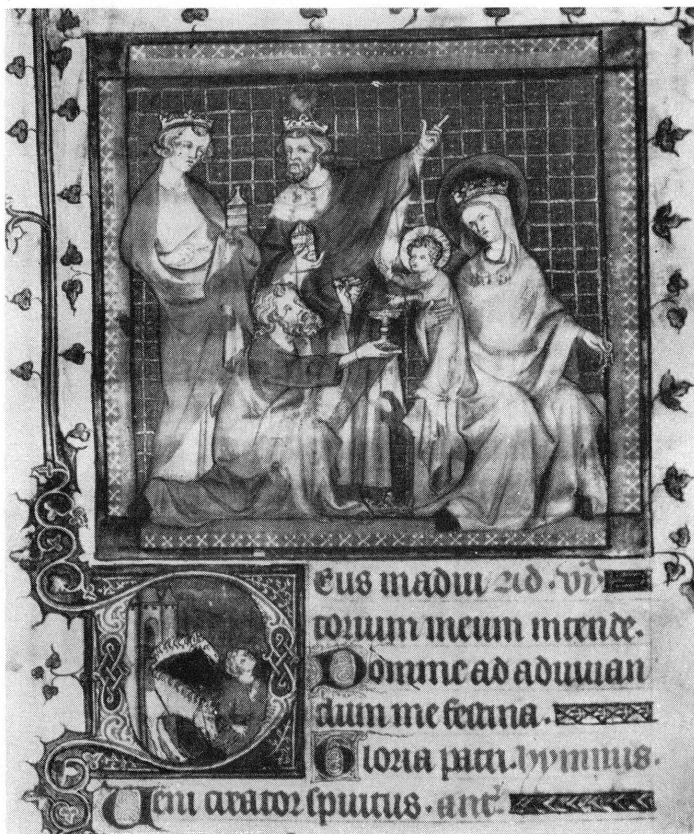 Deus in adiu ad. vi.
torium meum intende.
Domine ad adiuuan
dum me festina.
Gloria patri. hymnus.
Veni creator spiritus. ant.